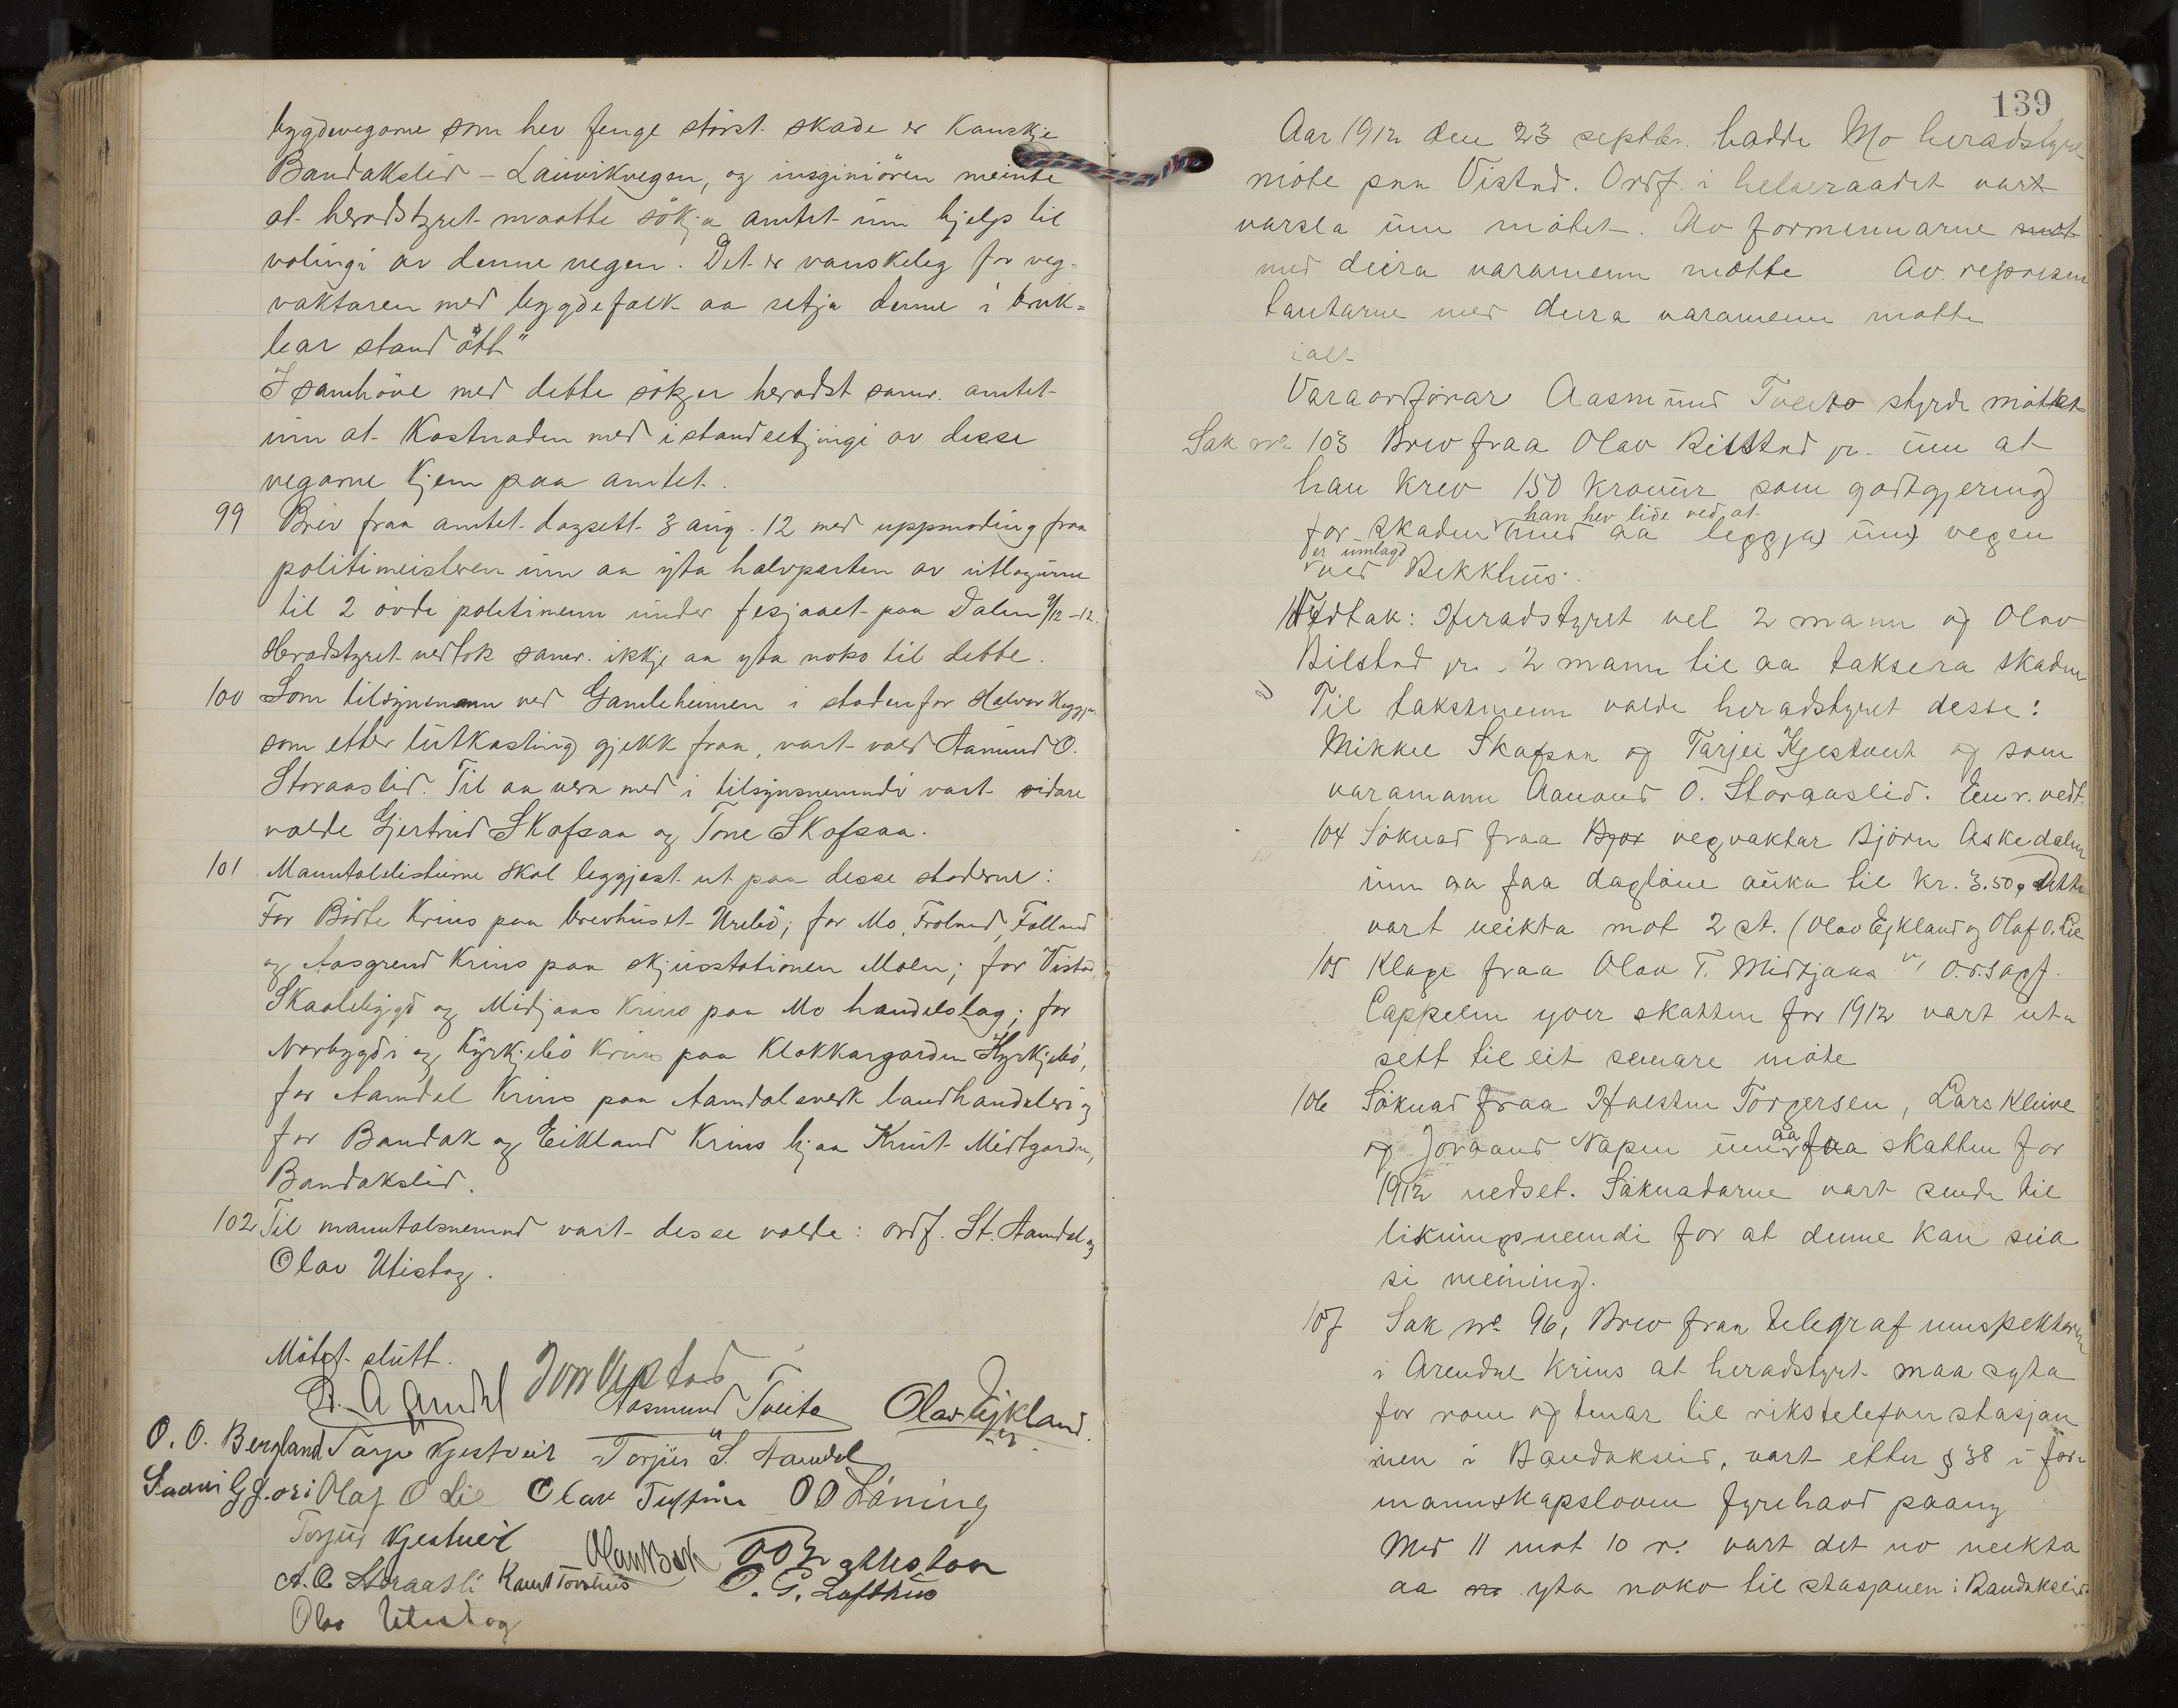 bygdevegarne som hev fenge störst skade er kanskje
Bandakslid - Lauvikvegen, og insginiören meinte
at heradstyret maatte sökja amtet um hjelp til
volingi av denne vegen. Det er vanskeleg for veg-
vaktaren med bygdefolk aa setja denne i bruk=
bar stand ått"
I samhöve med dette sökjer heradst samr. amtet
um at kostnaden med istandsetjingi av desse
vegarne kjem paa amtet.
99 Brev fraa amtet dagsett 3 aug. 12 med uppmoding fraa
politimeisteren um aa yta halvparten av utlogurne
til 2 övde politimenn under fesjaaet paa Dalen 9/12-12.
Heradstyret vedtok samr. ikkje aa yta noko til dette.
100 Som tilsynsmann ved Gamleheimen i staden for Halvor
som etter utkasting gjekk fraa, vart vald Aamund O.
Storaaslid. Til aa vera med i tilsynsnemndi vart vidare
valde Gjertrud Skafsaa og Tone Skafsaa.
101 Manntalslisturne skal leggjast ut paa desse staderne:
For Börte krins paa brevhuset Urebö; for Mo, Froland, Folland
og Aasgrend krins paa skjusstationen Moen; for Vistad,
Skaalebygd og Midjaas krins paa Mo handelslag; for
Norbygdi og Kyrkjebö krins paa Klokkargarden Kyrkjebö,
for Aamdal krins paa Aamdalsverk landhandleri og
for Bandak og Eikland krins hjaa Knut Midtgarden,
Bandakslid.
102 Til manntalsnemnd vart desse valde: ordf. St. Aamdal og
Olav Utistog.
Mötet slutt.
St. A Aamdal Jon Vistad
Aasmund Tveito Olav Ejkland.
O. O. Bergland Tarje Kjestveit Torjus S. Aamdal
Olaf O Lie Olav O O Låning
Torjus Kjestveit Olav Bak
A. O. Storaasli Knut O. G. Lofthus
Olav Utistog
139
Aar 1912 den 23 septbr. hadde Mo heradstyre
möte paa Vistad. Ordf. i helseraadet vart
varsla um mötet. Av formennarne möt
med deira varamenn mötte Av. represen
tantarne med deira varamenn mötte
ialt
Varaordförar Aasmund Tveito styrde mötet
Sak no 103 Brev fraa Olav Bilstad jr. um at
han krev 150 kronur som godtgjering
han hev lide ved at
for skaden med aa leggja um vegen
er umlagd
ved Bekkhus.
Vedtak: Heradstyret vel 2 mann og Olav
Bilstad jr. 2 mann til aa taksera skaden
Til takstmenn valde heradstyret desse:
Mikkel Skafsaa og Tarjei Kjestveit og som
varamann Aanond O. Storaaslid. Einr. vedt.
104 Söknad fraa Bjor vegvaktar Björn Askedalen
um aa faa daglöne auka til kr. 3.50, dette
vart neikta mot 2 st. (Olav Ejkland og Olaf O. Lie
105 Klage fraa Olav T. Midtjaas o.r.sagf.
Cappelen yver skatten for 1912 vart ut-
sett til eit senare möte
106 Söknad fraa Halsten Torgersen, Lars Kleive
og Joraand Napen um aa faa skatten for
1912 nedset. Söknadarne vart sende til
likningsnemdi for at denne kan seia
si meining.
107 Sak no 96, Brev fraa telegraf umspektören
i Arendal krins at heradstyret maa syta
for rom og tenar til rikstelefonstasjon
inen i Bandakslid, vart etter § 38 i for-
mannskapsloven fyrehavd paany
Med 11 mot 10 r. vart det no neikta
aa no yta noko til stasjonen i Bandakslid